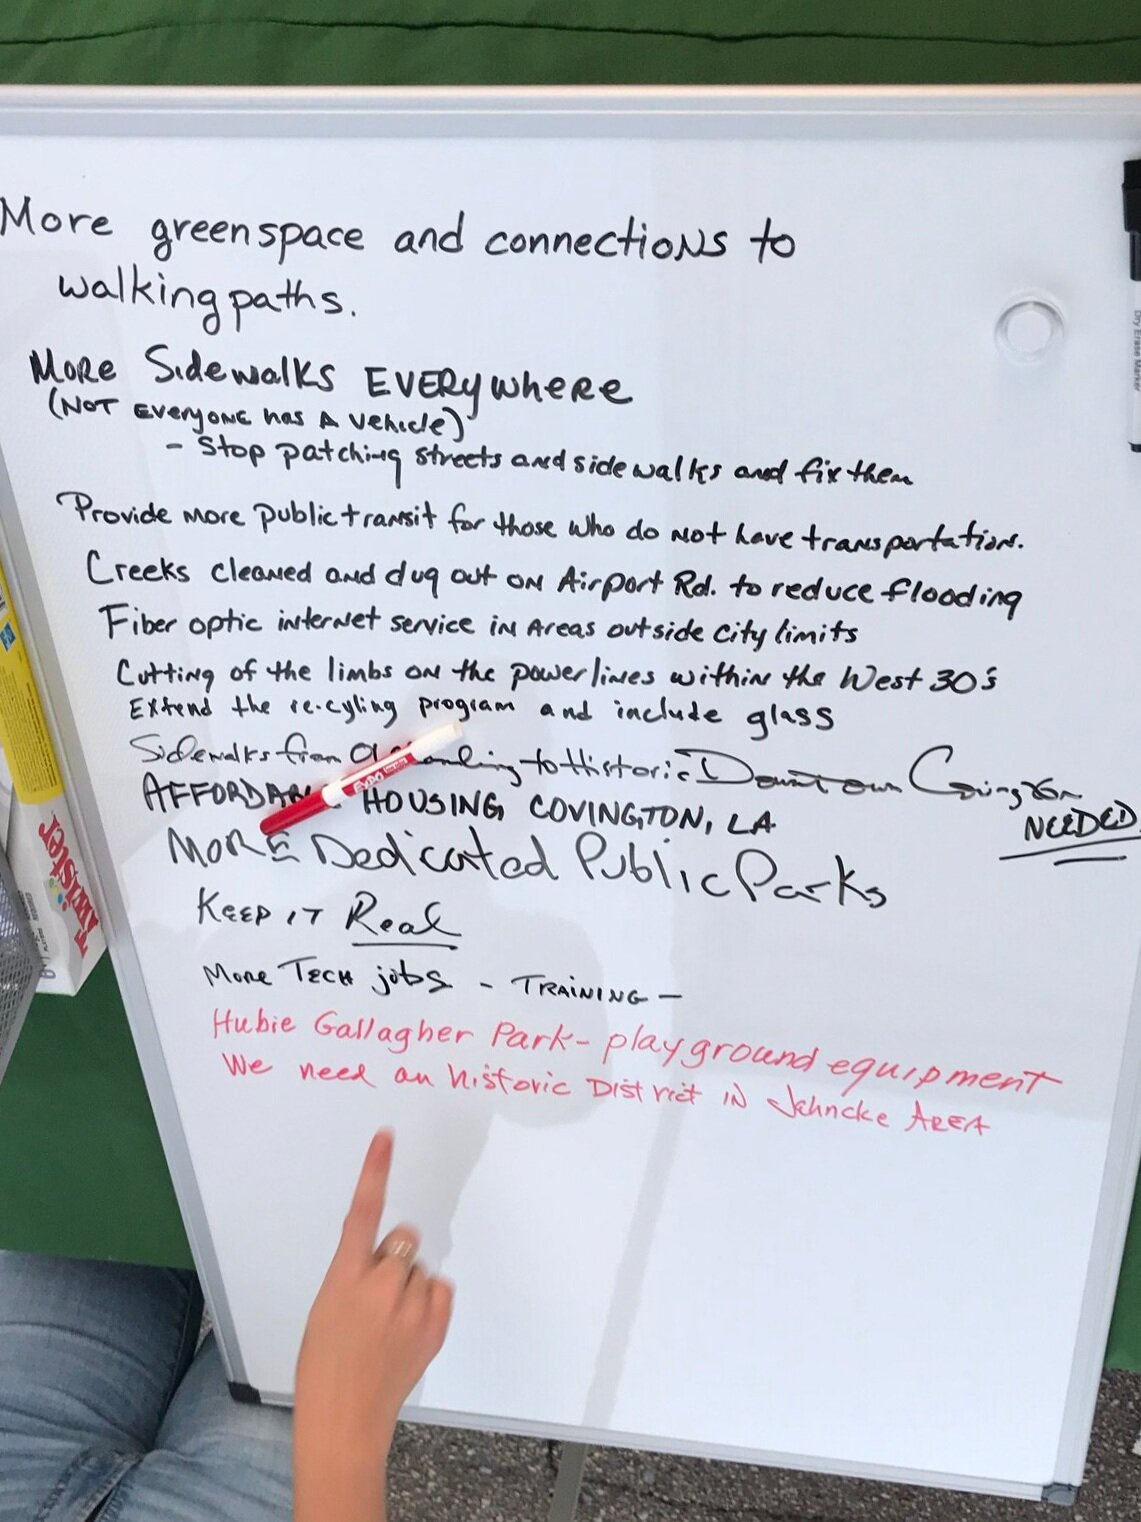 More greenspace and connections to
walking paths.
More Sidewalks EVERYwhere
(Not Everyone has a vehicle)
- Stop patching streets and sidewalks and fix them
Provide more public transit for those who do not have transportation.
Creeks cleaned and dug out on Airport Rd. to reduce flooding
Fiber optic internet service in areas outside city limits
Cutting of the limbs on the powerlines within the West 30's
Extend the re-cyling program and include glass
Sidewalks from to Historic Downtown Covington
AFFORDABLE HOUSING COVINGTON, LA
NEEDED
More Dedicated Public Parks
Keep it Real
More Tech jobs - Training -
Hubie Gallagher Park - playground equipment
We need an historic District in Jahncke Area
EXPO
Dry Erase Marker
Twister